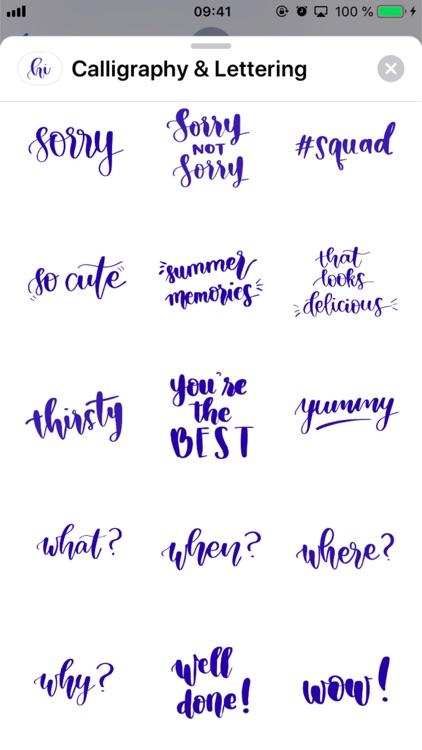 09:41
100 %
hi
Calligraphy & Lettering
sorry
Sorry
NOT
Sorry
#squad
so cute
summer
memories
that
looks
delicious
thirsty
you're
the
BEST
yummy
what?
when?
where?
why?
well
done!
wow!